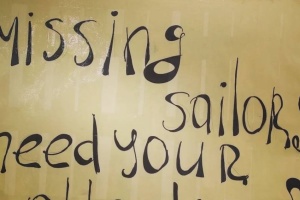 Missing
sailors
need your